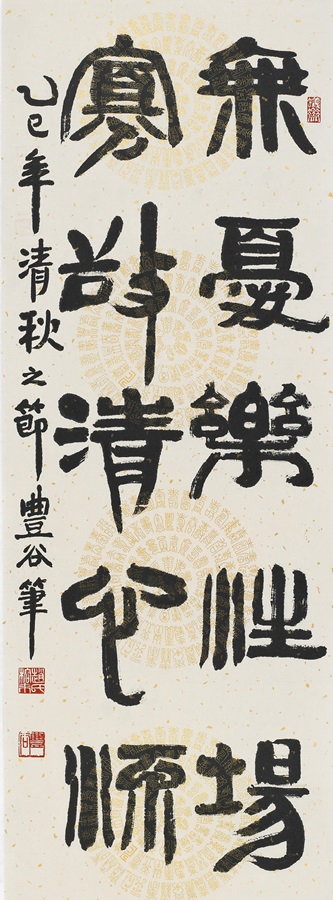 無憂樂性場
寡欲清心源
乙巳年清秋之節豊谷筆